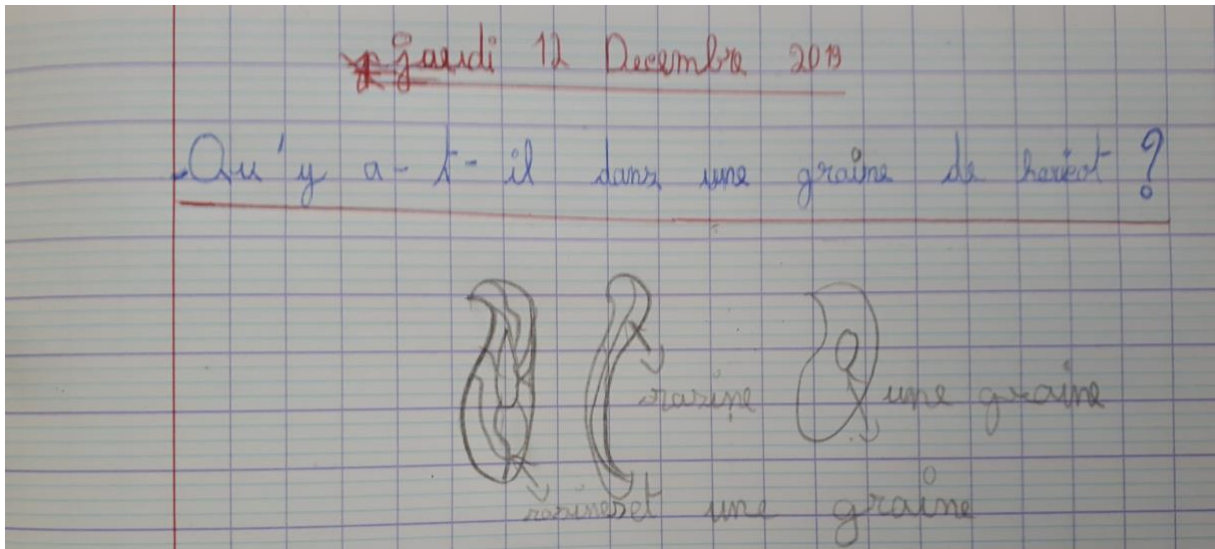 jeudi 12 Decembre 2019
Qu'y a-t-il dans une graine de haricot ?
rasine
une graine
rasines et une graine